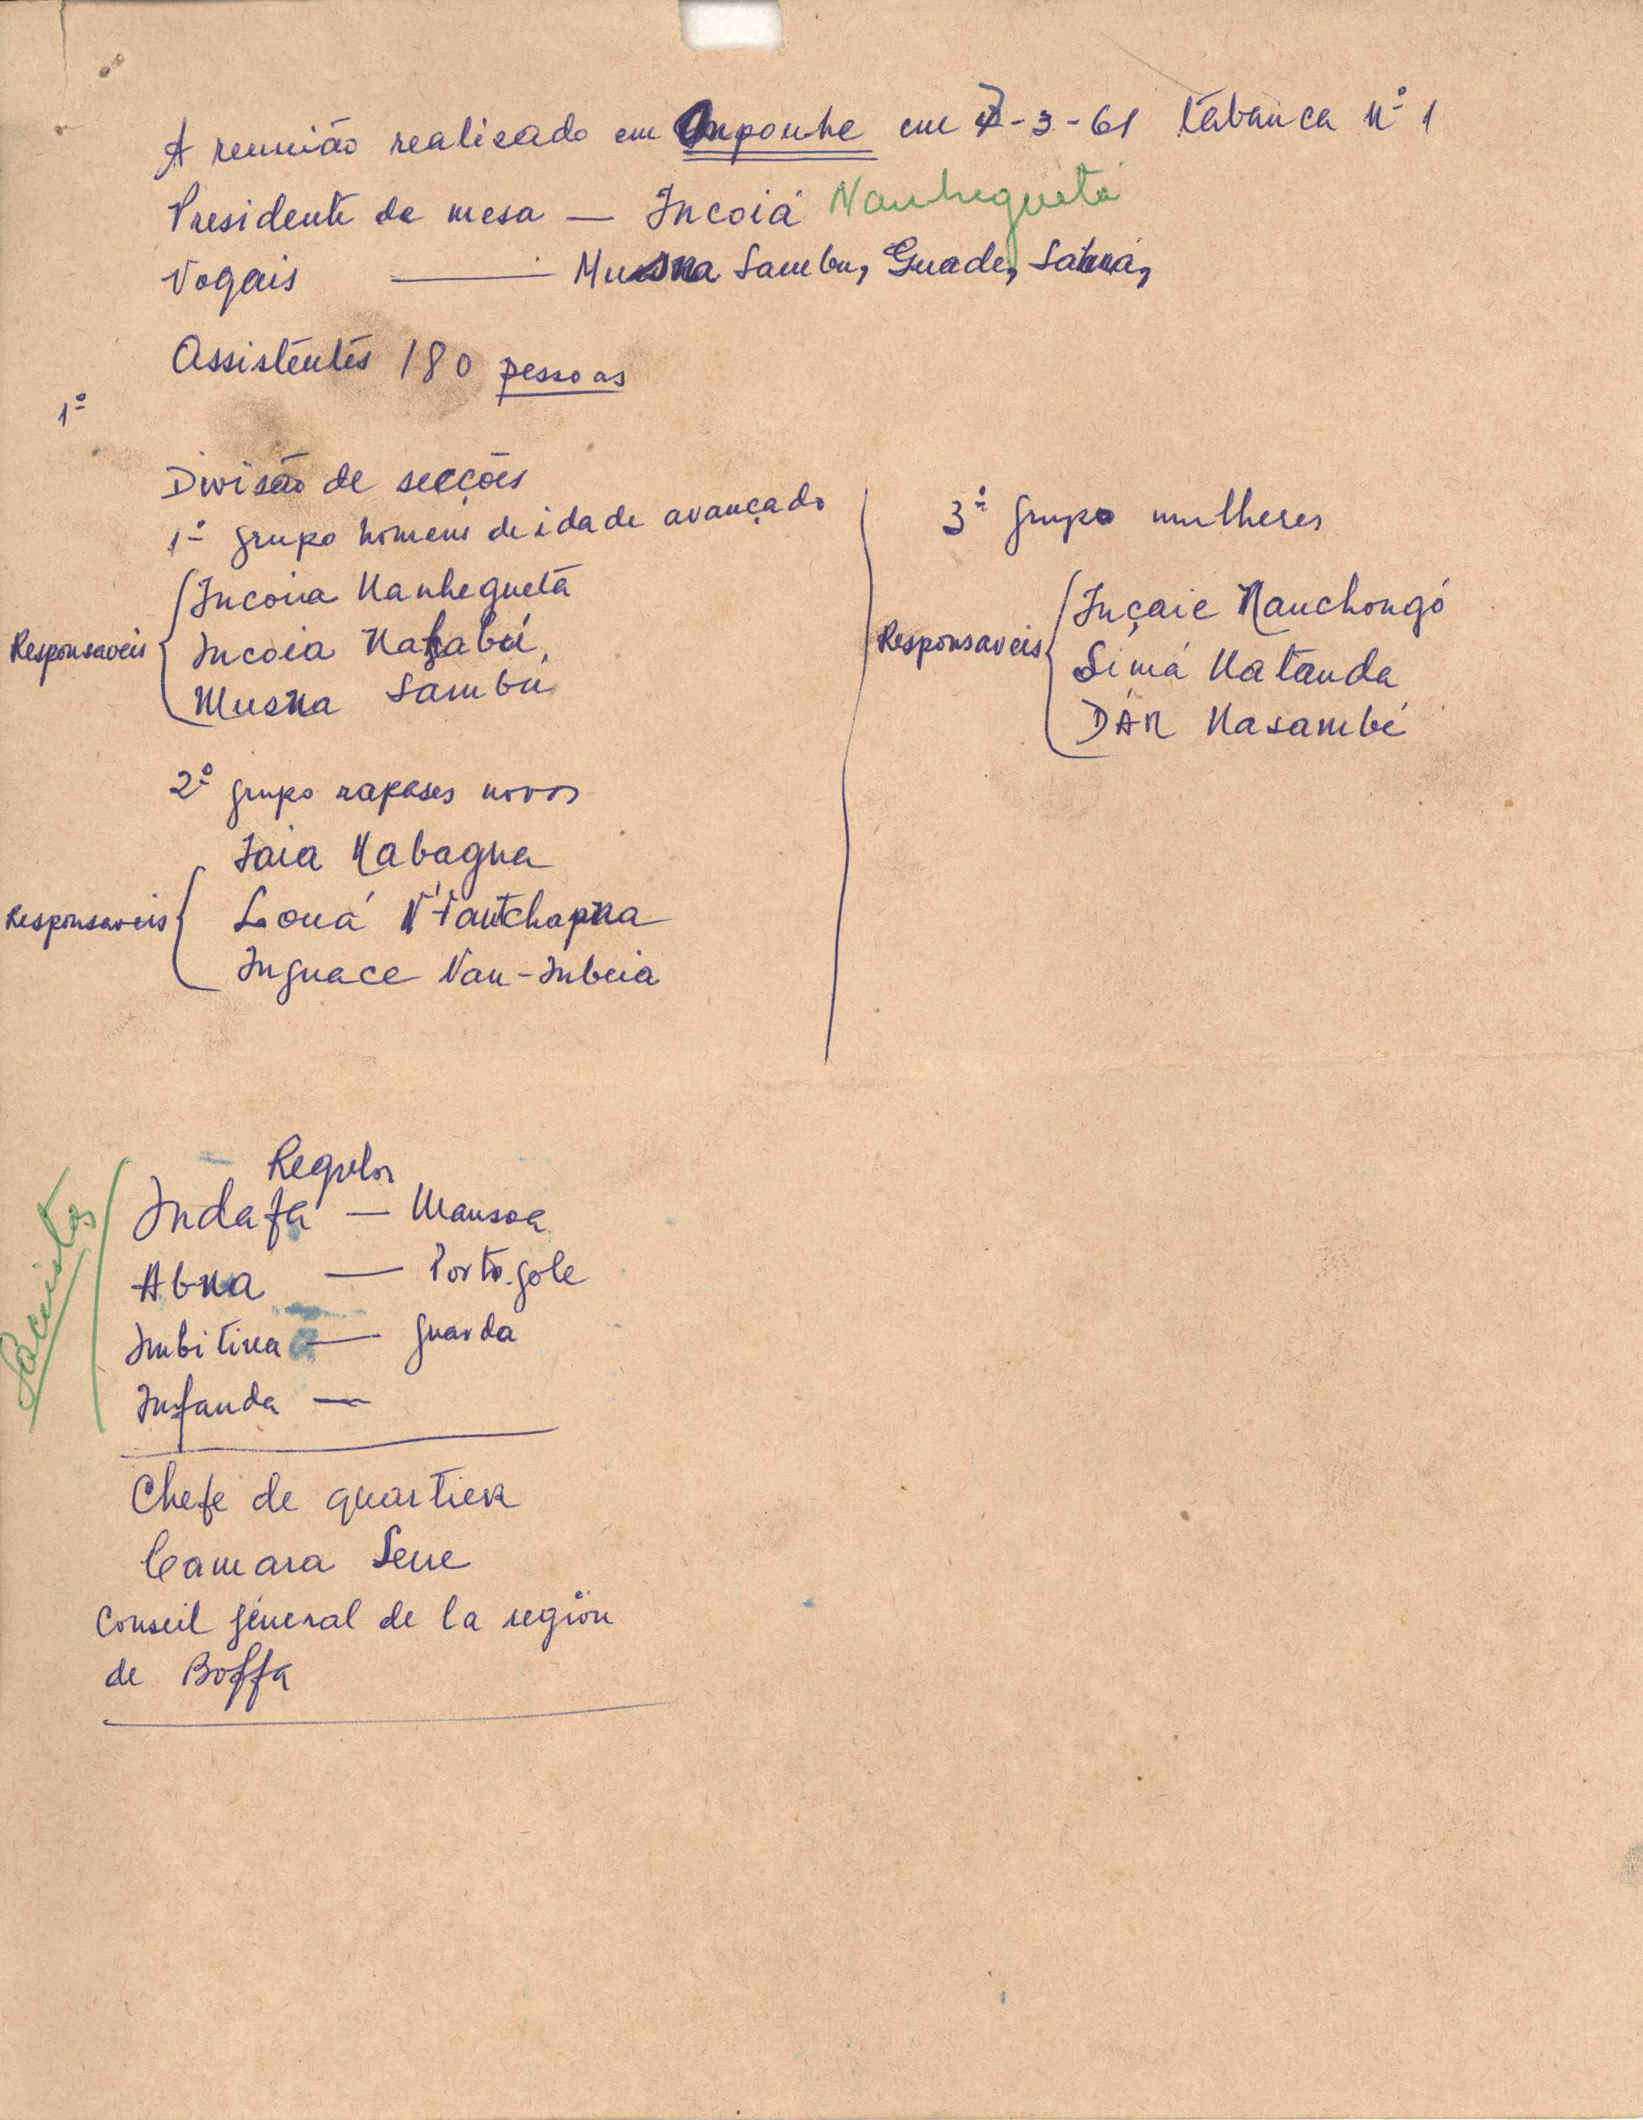 A reunião realizado em Onponhe em 7-3-61 tabanca nº 1
Presidente da mesa — Incoiá Nanhequetá
Vogais — Musna Sambu, Guade, Sahná,
Assistentes 180 pessoas
1º
Divisão de secções
1º grupo homens de idade avançado
Responsaveis
Incoia Nanheguetá
Incoia Nafabú,
Musna Sambú
2º grupo rapases novos
Responsaveis
Jaia Nabagna
Louá N'Tantchapna
Inguace Nan-Inbeia
3º grupo mulheres
Responsaveis
Inçaie Nanchongó
Simá Natanda
DÁN Nasambé
Regulos
Indafa — Mansoa
Abna — Porto.gole
Inbitina — guarda
Infanda —
Chefe de quartier
Camara Sene
Conseil général de la région
de Boffa